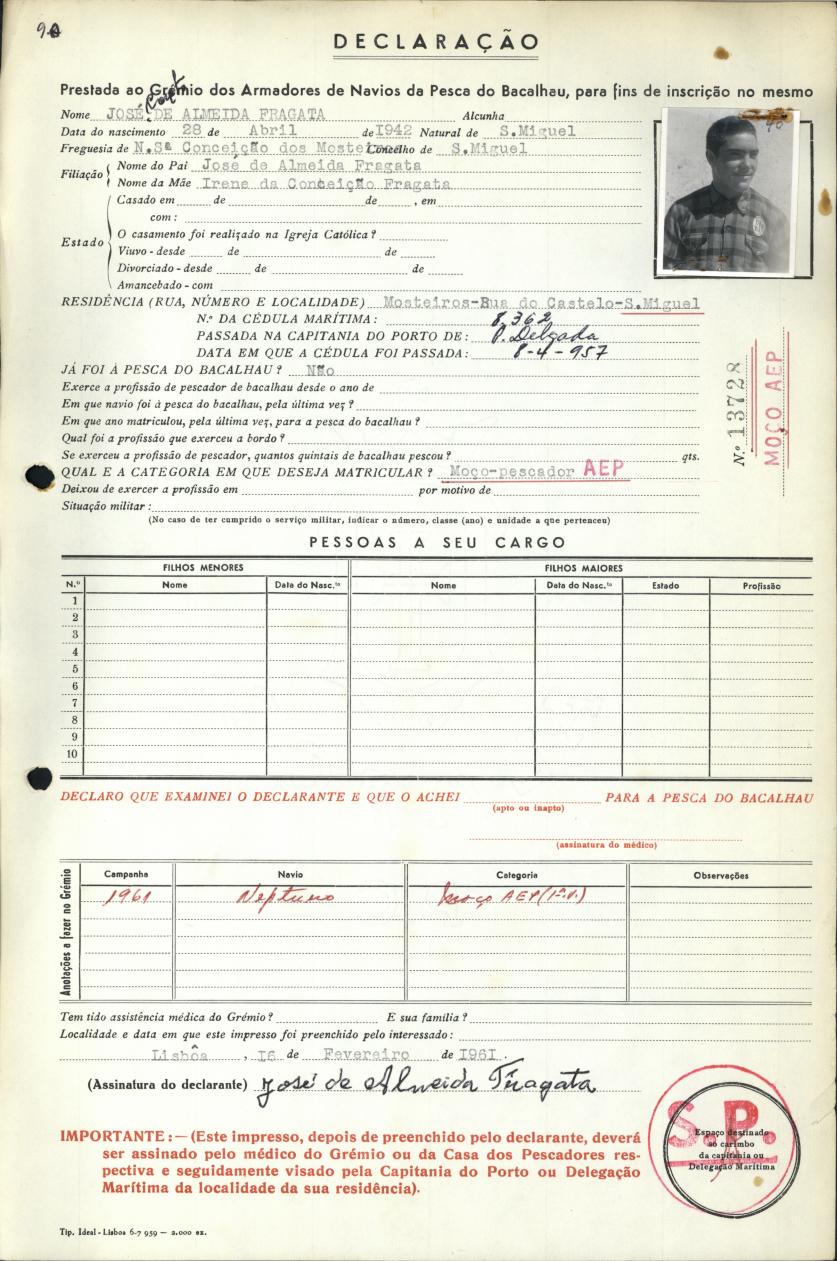 DECLARAÇÃO
Prestada ao Grémio dos Armadores de Navios da Pesca do Bacalhau, para fins de inscrição no mesmo
Nome JOSÉ DE ALMEIDA FRAGATA Alcunha
Data do nascimento 28 de Abril de 1942 Natural de S.Miguel
Freguesia de N.Sª Conceição dos Mosteiros Concelho de S.Miguel
Filiação
Nome do Pai José de Almeida Fragata
Nome da Mãe Irene da Conceição Fragata
Estado
Casado em de de , em
com :
O casamento foi realizado na Igreja Católica ?
Viuvo - desde de de
Divorciado - desde de de
Amancebado - com
RESIDÊNCIA (RUA, NÚMERO E LOCALIDADE) Mosteiros-Rua do Castelo-S.Miguel
N.º DA CÉDULA MARÍTIMA : 8.362
PASSADA NA CAPITANIA DO PORTO DE : P. Delgada
DATA EM QUE A CÉDULA FOI PASSADA : 8-4-957
JÁ FOI À PESCA DO BACALHAU ? Não
Exerce a profissão de pescador de bacalhau desde o ano de
Em que navio foi à pesca do bacalhau, pela última vez ?
Em que ano matriculou, pela última vez, para a pesca do bacalhau ?
Qual foi a profissão que exerceu a bordo ?
Se exerceu a profissão de pescador, quantos quintais de bacalhau pescou ? qts.
QUAL E A CATEGORIA EM QUE DESEJA MATRICULAR ? Moço-pescador AEP
Deixou de exercer a profissão em por motivo de
Situação militar :
(No caso de ter cumprido o serviço militar, indicar o número, classe (ano) e unidade a que pertenceu)
N.º 13728
MOÇO AEP
PESSOAS A SEU CARGO
FILHOS MENORES FILHOS MAIORES
N.º Nome Data do Nasc.to Nome Data do Nasc.to Estado Profissão
1
2
3
4
5
6
7
8
9
10
DECLARO QUE EXAMINEI O DECLARANTE E QUE O ACHEI PARA A PESCA DO BACALHAU
(apto ou inapto)
(assinatura do médico)
Anotações a fazer no Grémio
Campanha Navio Categoria Observações
1961 Neptuno Moço AEP (1ª.v.)
Tem tido assistência médica do Grémio ? E sua família ?
Localidade e data em que este impresso foi preenchido pelo interessado :
Lisbôa , 16 de Fevereiro de 1961.
(Assinatura do declarante) José de Almeida Fragata
IMPORTANTE : — (Este impresso, depois de preenchido pelo declarante, deverá
ser assinado pelo médico do Grémio ou da Casa dos Pescadores res-
pectiva e seguidamente visado pela Capitania do Porto ou Delegação
Marítima da localidade da sua residência).
S.P.
Espaço destinado
ao carimbo
da capitania ou
Delegação Marítima
Tip. Ideal - Lisboa 6-7 959 — 2.000 ex.